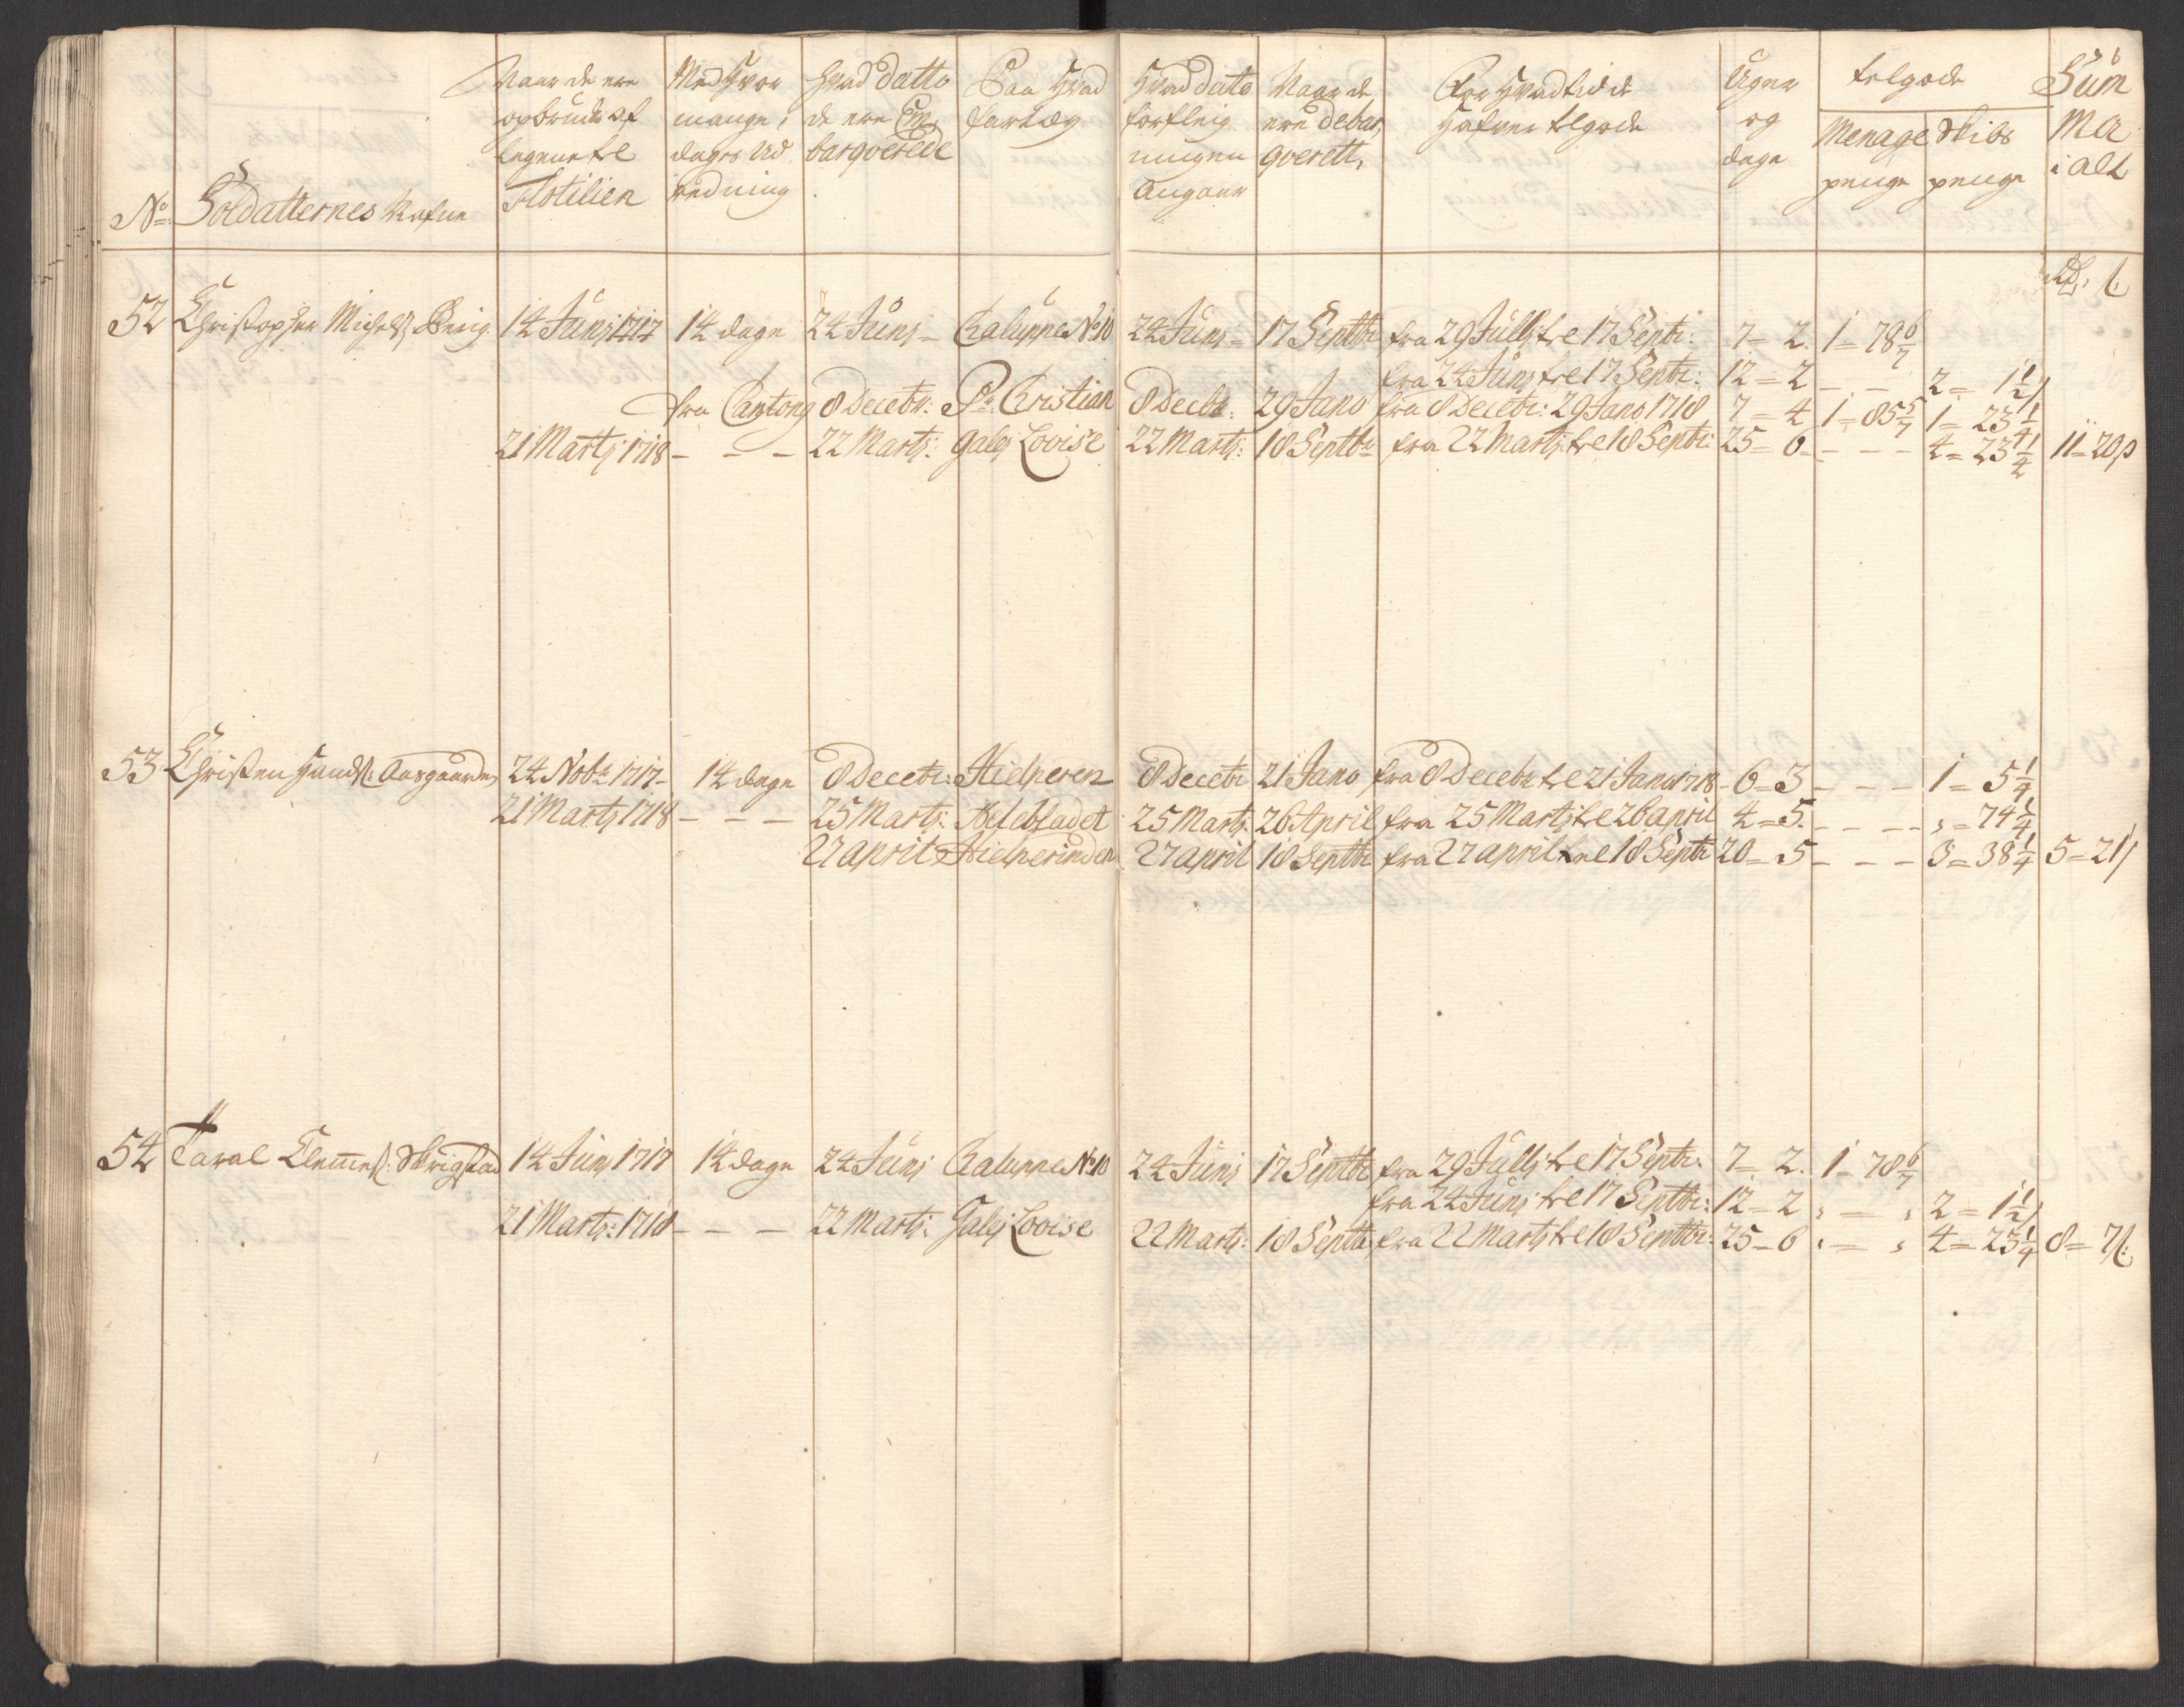 Naar de ere opbrudt af legerne te Flotilien
Med hvor mange dages Udredning
Hvad datto de ere Embarqverede
Paa Hvad fartøy
Hvad dato forfleigningen Angaar
Naar de ere debarqverett,
For Hvad tid de Hafver tilgode
Uger og dage
tilgode
Menage penge
Skibs penge
Summa i alt
No: Soldatternes Nafne
Rdr. ß
52 Christopher Michels: Berig 14 Junj 1717 14 dage 24 Junj – Chaluppe No 10 24 Junj – 17 Septbr fra 29 Jullj te 17 Septr: 7 = 2. 1 = 78 6/7
fra 24 Junj te 17 Septr: 12 = 2 – – 2 = 1 1/2
fra Cantong 8 Decebr: Pr Christian 8 Decbr: 29 Jano fra 8 Decebr: 29 Jano 1718 7 = 4 1 = 85 5/7 1 = 23 1/4
21 Martj 1718 – – – 22 Martj: galej Lovise 22 Martj: 18 Septbr fra 22 Martj te 18 Septr 25 = 6 – – – 4 = 23 1/4 11 = 20ß
53 Christen Hands: Aasgaarden 24 Nobr 1717 – 14 dage 8 Decebr: Hielperen 8 Decebr 21 Jano fra 8 Decebr te 21 Jano 1718 – 6 = 3 – – – 1 = 5 1/4
21 Martj 1718 – – – 25 Martj: Neldebladet 25 Martj: 26 April fra 25 Martj te 26 april 4 = 5. – – – „ = 74 1/4
27 april Hielperinden 27 april 18 Septbr fra 27 april te 18 Septr 20 = 5 – – – 3 = 38 1/4 5 = 21ß
54 Taral Clemes: Skrigstad 14 Junj 1717 14 dage 24 Junj Chaluppe No 10 24 Junj 17 Septbr fra 29 Jullj te 17 Septr: 7 = 2. 1 = 78 6/7
fra 24 Junj te 17 Septbr: 12 = 2 „ = „ 2 = 1 1/2
21 Martj: 1718 – – – 22 Martj: Galej Lovise 22 Martj: 18 Septbr fra 22 Martj te 18 Septbr: 25 = 6 „ = „ 4 = 23 1/4 8 = 7ß: